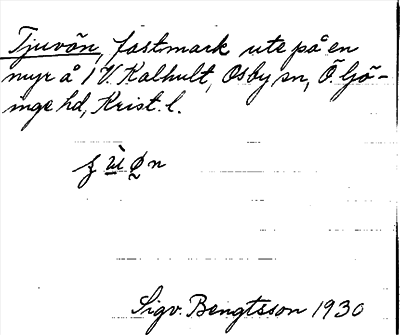 Tjuvön, fastmark ute på en
myr å 1 V. Kalhult, Osby sn, Ö. Gö-
inge hd, Krist. l.
Sigv. Bengtsson 1930